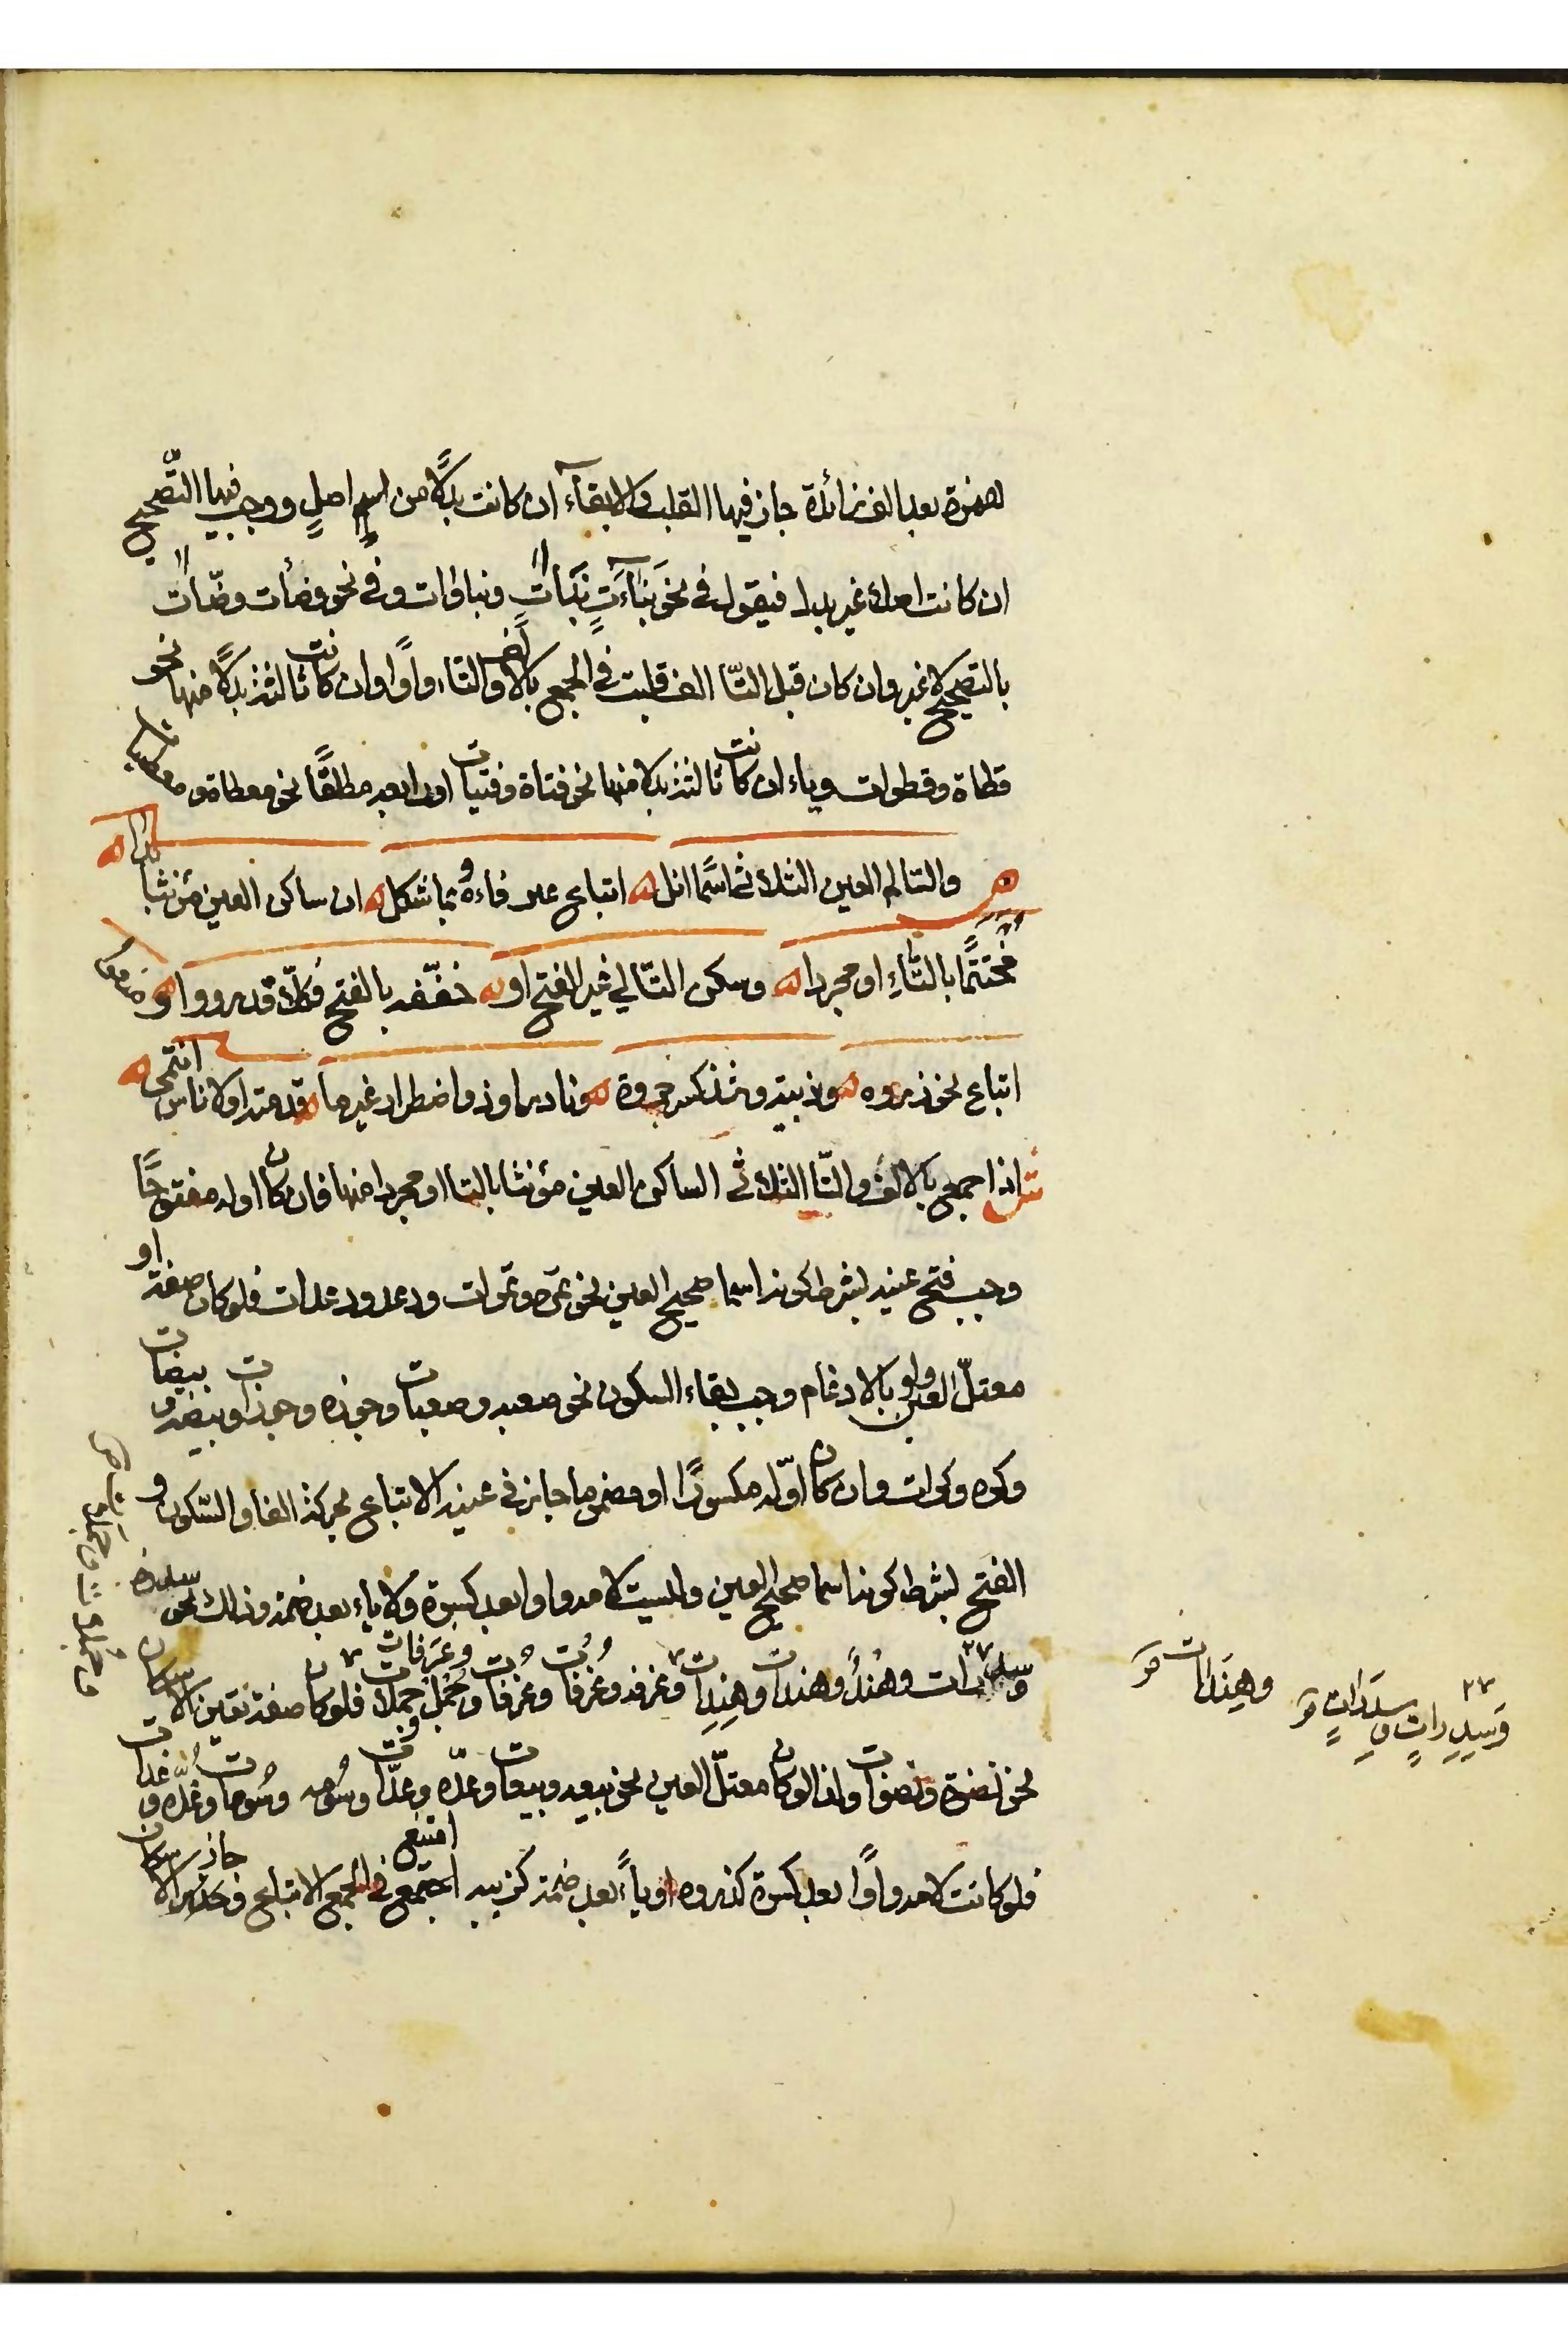 همزة بعد الف زائدة جاز فيها القلب والابقاء ان كانت بدلًا من اصلٍ ووجب فيها التّصحيح
ان كانت اصلا غير بدل فيقول في نحو بَنآءَتٍ نبآات ونباوات وفي نحو وضأت وضّاات
بالتصحيح لا غير وان كان قبل التّا الف قلبت في الجمع بالالف والتاء واوًا وان كانت ثالثة بدلًا منها نحو
قطاة وقطوات وياء ان كانت ثالثة بدلا منها نحو فتاة وفتيات او رابعة مطلقًا نحو معطاة ومعطيات
والسالم العين الثلاثى اسمًا انل اتباع عين فاءهُ بما شكل ان ساكن العين مؤنثًا بدا
مختتمًا بالتّاءِ او مجردا وسكن التّالي غير الفتح او خفّفه بالفتح فكلّا قد رووا ومنعوا
اتباع نحو ذروه وزبية وشذ كسر جروة ونادر او ذو اضطرار غير ما قدمته او لاناس انتمى
ش اذا جمع بالالف والتّا الثلاثى الساكن العين مؤنثا بالتا او مجردا منها فان كان اوله مفتوحًا
وجب فتح عينه بشرط كونه اسما صحيح العين نحو تمرة وتمرات ودعد ودعدات فلو كان صفة او
معتلّ العين ولو بالادغام وجب بقاء السكون نحو صعبه وصعبات وجوزه وجوزات وبيضه وبيضات
وكوه وكوات وان كان اوّله مكسورًا او مضموما جاز في عينه الاتباع لحركة الفا والسّكون و
الفتح بشرط كونه اسما صحيح العين وليست لامه واوا بعد كسرة ولا ياء بعد ضمة وذلك نحو سدره
وسدرات وهُند وهندات وهِنِدات وغرفه وغُرُفات وغُرْفات وغُرَفات وجُمْل وجملات فلو كان صفة تعين الاسكان
نحو نضوة ونضوات وكذا لو كان معتلّ العين نحو بيعه وبيعات وعدّه وعدّات وسُومه وسُومات وعُدّه وعُدّات
فلو كانت لامه واوًا بعد كسرة كذروه او ياءً بعد ضمة كزبيه امتنع في الجمع الاتباع وجاز الاسكان
وهِنَدات
وسِدِرات وسِدَرات